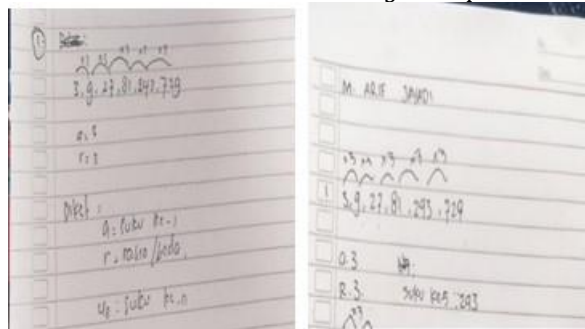 1.
x3 x3 x3 x3 x3
3, 9, 27, 81, 243, 729
a = 3
r = 3
Diket :
a = suku ke-1
r = rasio / beda
= suku ke-n
M. ARIF JAYADI
x3 x3 x3 x3 x3
1 3, 9, 27, 81, 293, 729
a. 3
R. 3. suku ke 5 : 293
x3